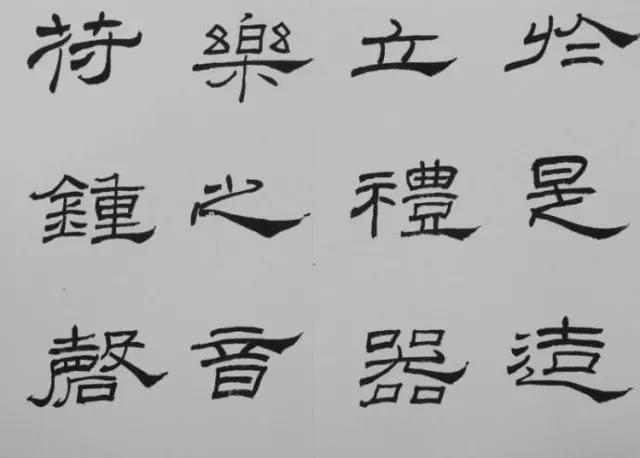 於是造
立禮器
樂之音
苻鍾磬